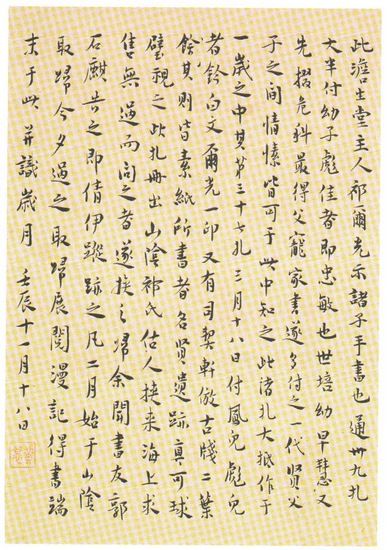 此澹生堂主人祁爾光示諸子手書也通卅九扎
大半付幼子彪佳者即忠敏也世培幼早慧又
先掇危科最得父寵家書遂多付之一代賢父
子之間情愫皆可于此中知之此諸扎大抵作于
一歲之中其第三十七扎三月十八日付鳳兒彪兒
者鈐白文爾光一印又有司契軒倣古牋二葉
餘其則皆素紙所書者名賢遺跡真可球
璧視之此扎冊出山陰祁氏估人挾來海上求
售無過而問之者遂挾之歸余聞書友郭
石麒告之即倩伊蹤跡之凡二月始于山陰
取歸今夕過之取歸展閱漫記得書端
末于此并識歲月 壬辰十一月十八日